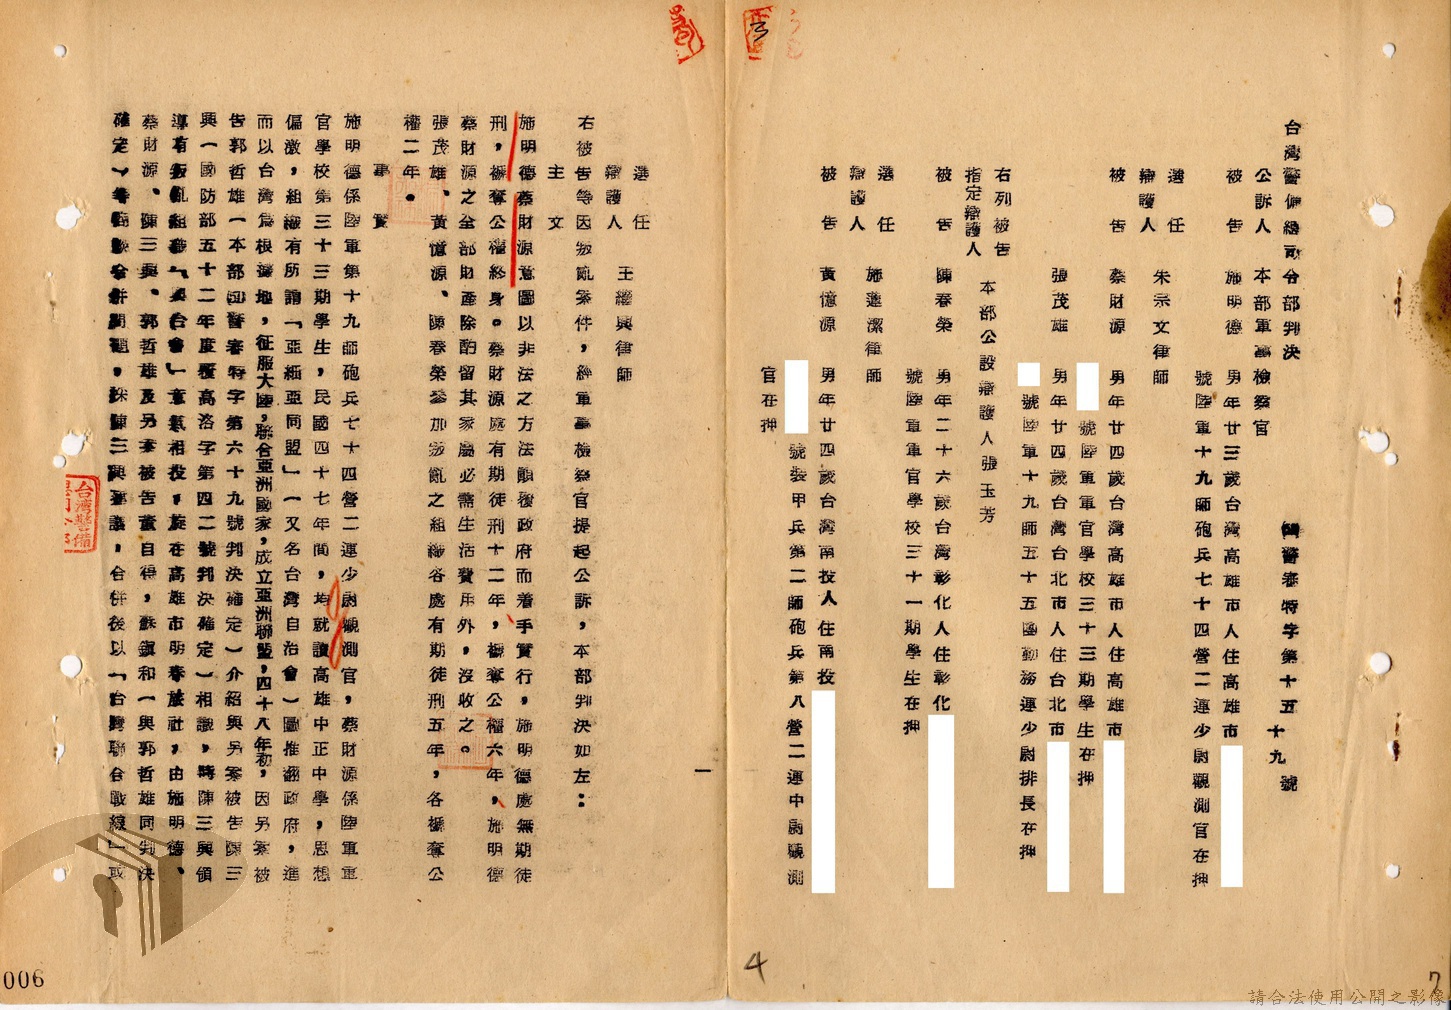 台灣警備總司令部判決
警審特字第十五
十九
號
公訴人 本部軍事檢察官
被告 施明德 男年廿三歲台灣高雄市人住高雄市
號陸軍十九師砲兵七十四營二連少尉觀測官在押
選任
辯護人 朱宗文律師
被告 蔡財源 男年廿四歲台灣高雄市人住高雄市
號陸軍軍官學校三十三期學生在押
張茂雄 男年廿四歲台灣台北市人住台北市
號陸軍十九師五十五團勤務連少尉排長在押
右列被告
指定辯護人 本部公設辯護人張玉芳
被告 陳春榮 男年二十六歲台灣彰化人住彰化
號陸軍軍官學校三十一期學生在押
選任
辯護人 施蓮潔律師
被告 黃憶源 男年廿四歲台灣南投人住南投
號裝甲兵第二師砲兵第八營二連中尉觀測
官在押
一
選任
辯護人 王繼興律師
右被告等因叛亂案件,經軍事檢察官提起公訴,本部判決如左:
主文
施明德蔡財源意圖以非法之方法顛覆政府而着手實行,施明德處無期徒
刑,褫奪公權終身。蔡財源處有期徒刑十二年,褫奪公權六年,施明德
蔡財源之全部財產除酌留其家屬必需生活費用外,沒收之。
張茂雄、黃憶源、陳春榮參加叛亂之組織各處有期徒刑五年,各褫奪公
權二年。
事實
施明德係陸軍第十九師砲兵七十四營二連少尉觀測官,蔡財源係陸軍軍
官學校第三十三期學生,民國四十七年間,均就讀高雄中正中學,思想
偏激,組織有所謂「亞細亞同盟」(又名台灣自治會)圖推翻政府,進
而以台灣爲根據地,征服大陸,聯合亞洲國家,成立亞洲聯盟,四十八年初,因另案被
告郭哲雄(本部四警審特字第六十九號判決確定)介紹與另案被告陳三
興(國防部五十二年度覆高洛字第四二號判決確定)相識,時陳三興領
導有叛亂組織「興台會」意氣相投,旋在高雄市明春旅社,由施明德、
蔡財源、陳三興、郭哲雄及另案被告董自得,蘇鎮和(與郭哲雄同判決
確定)等商談合併問題,採陳三興建議,合併後以「台灣聯合戰線」或
台灣警備
3
4
7
006
請合法使用公開之影像